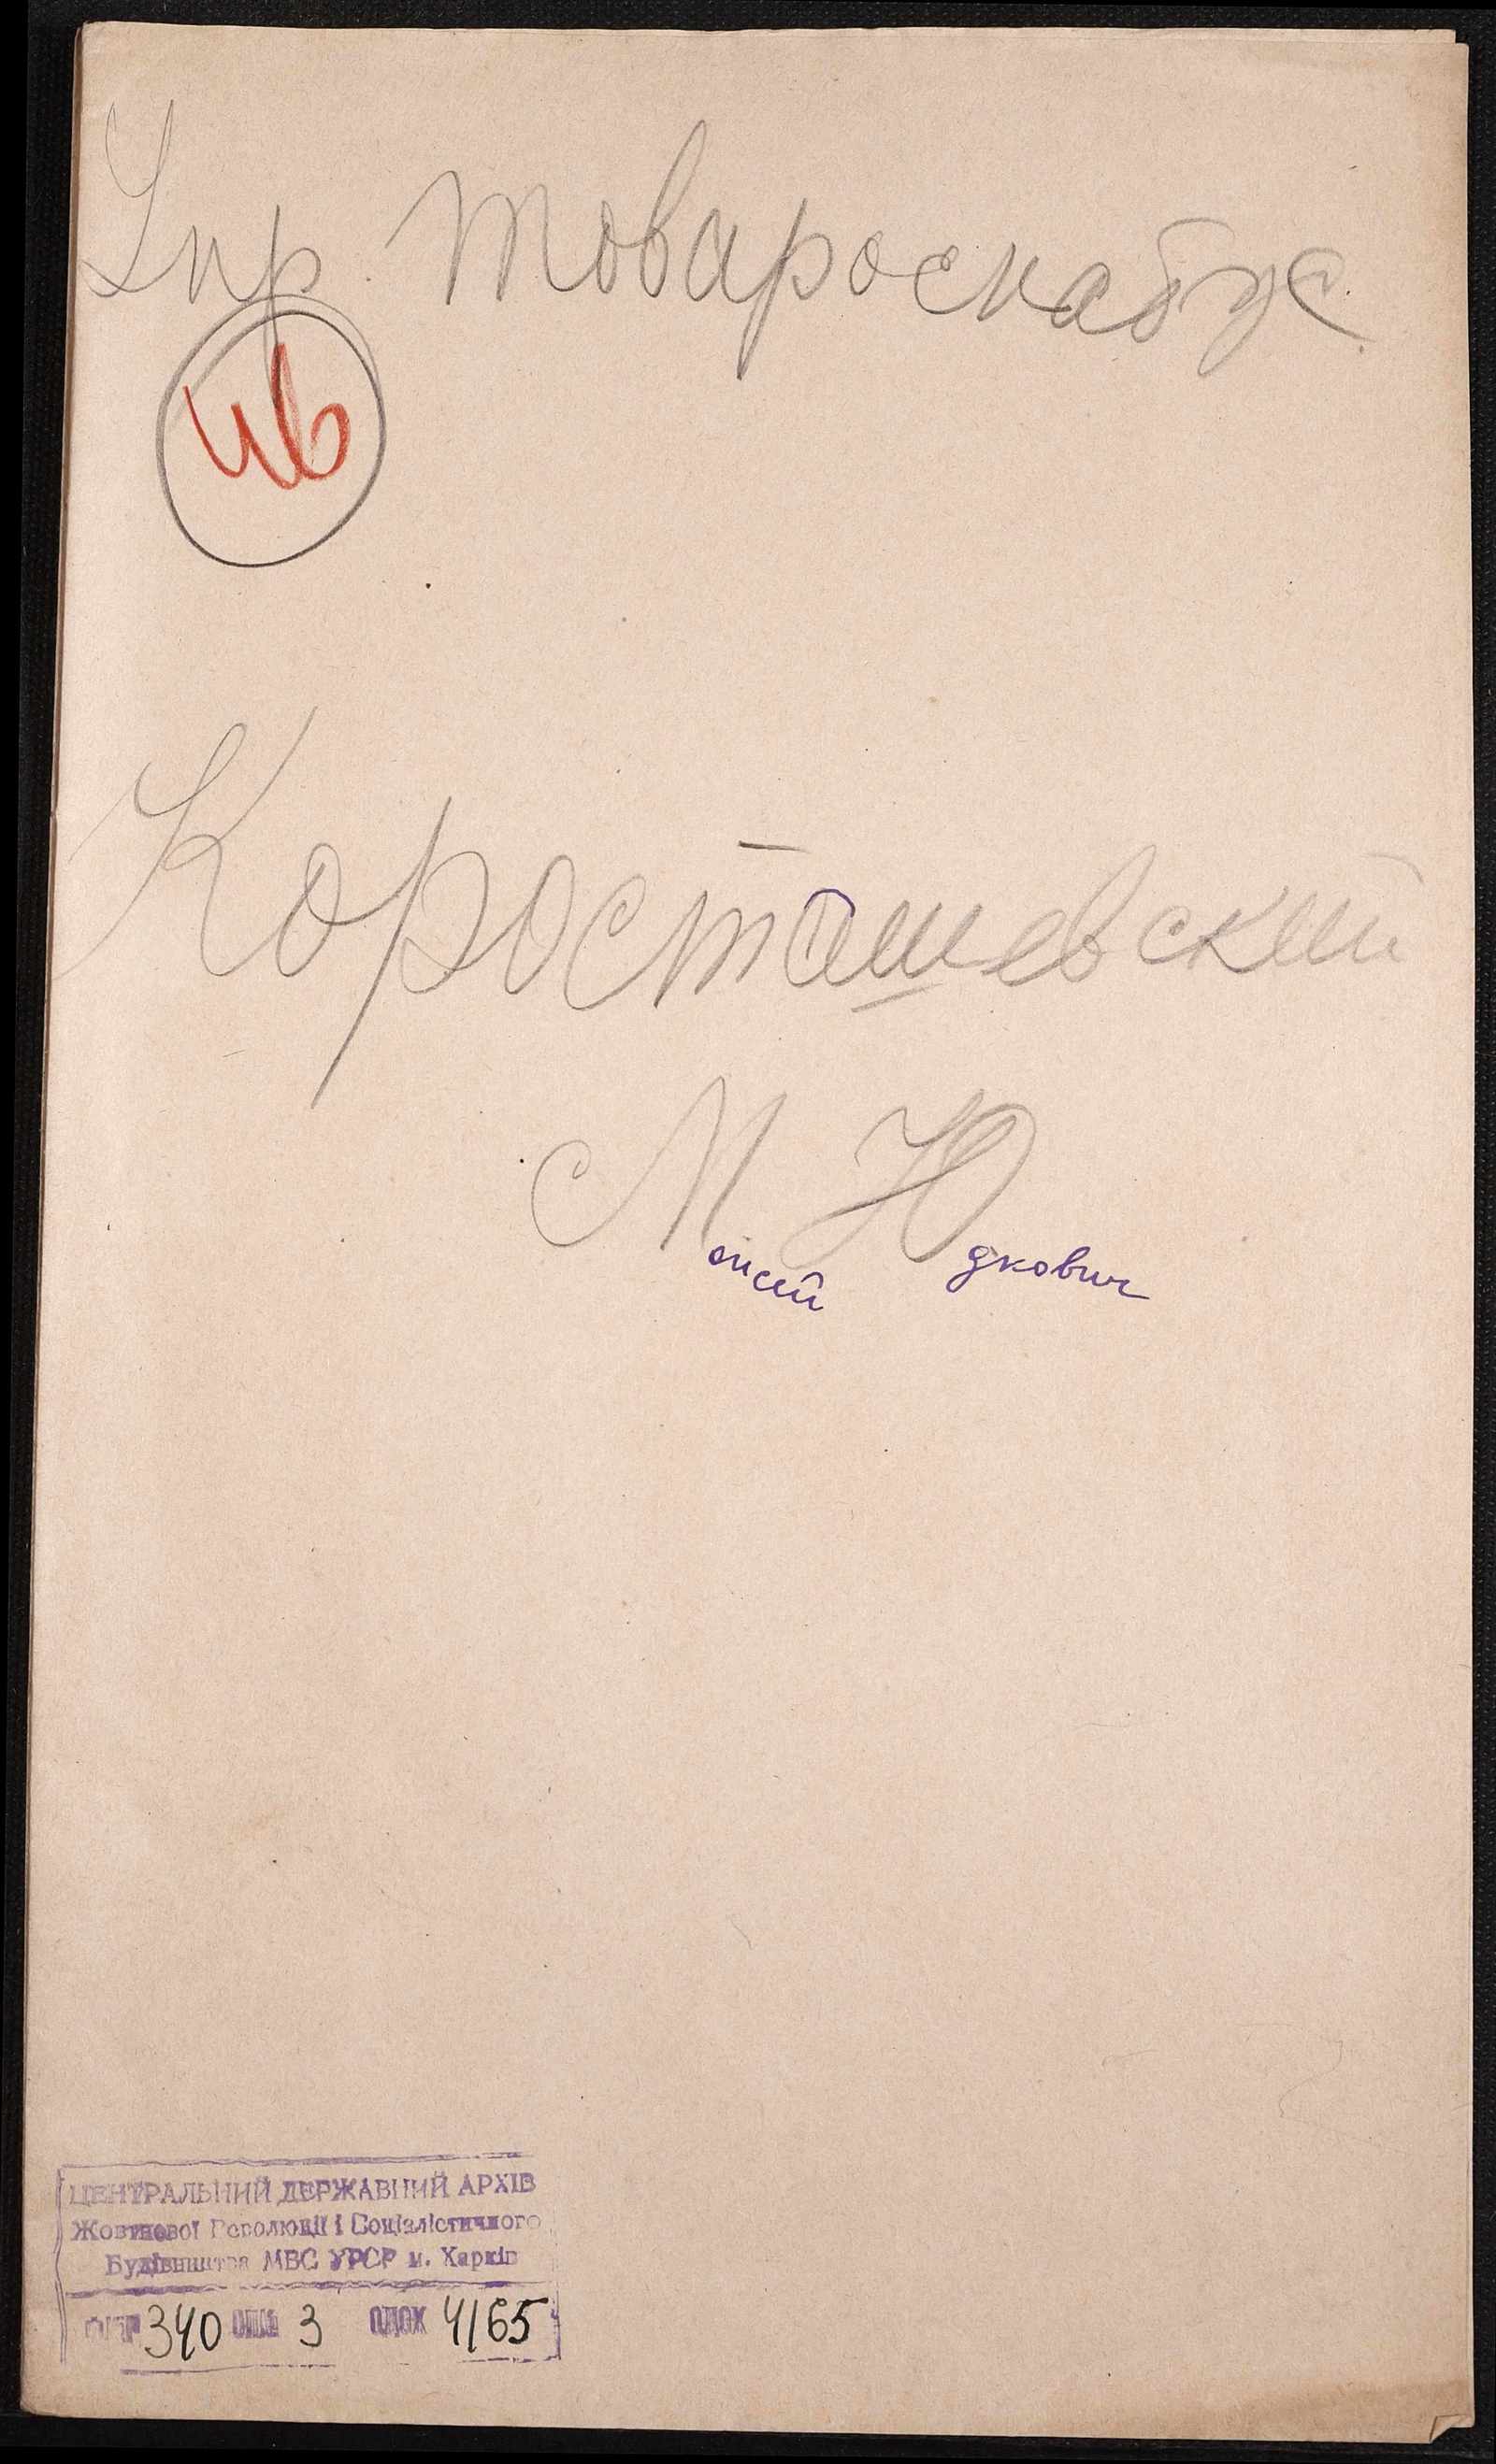 Упр. товароснабж.
46
Косташевский
М Ю
оисей дкович
ЦЕНТРАЛЬНИЙ ДЕРЖАВНИЙ АРХІВ
Жовтневої Революції і Соціалістичного
Будівництва МВС УРСР м. Харків
340 3 ОДОХ 4165